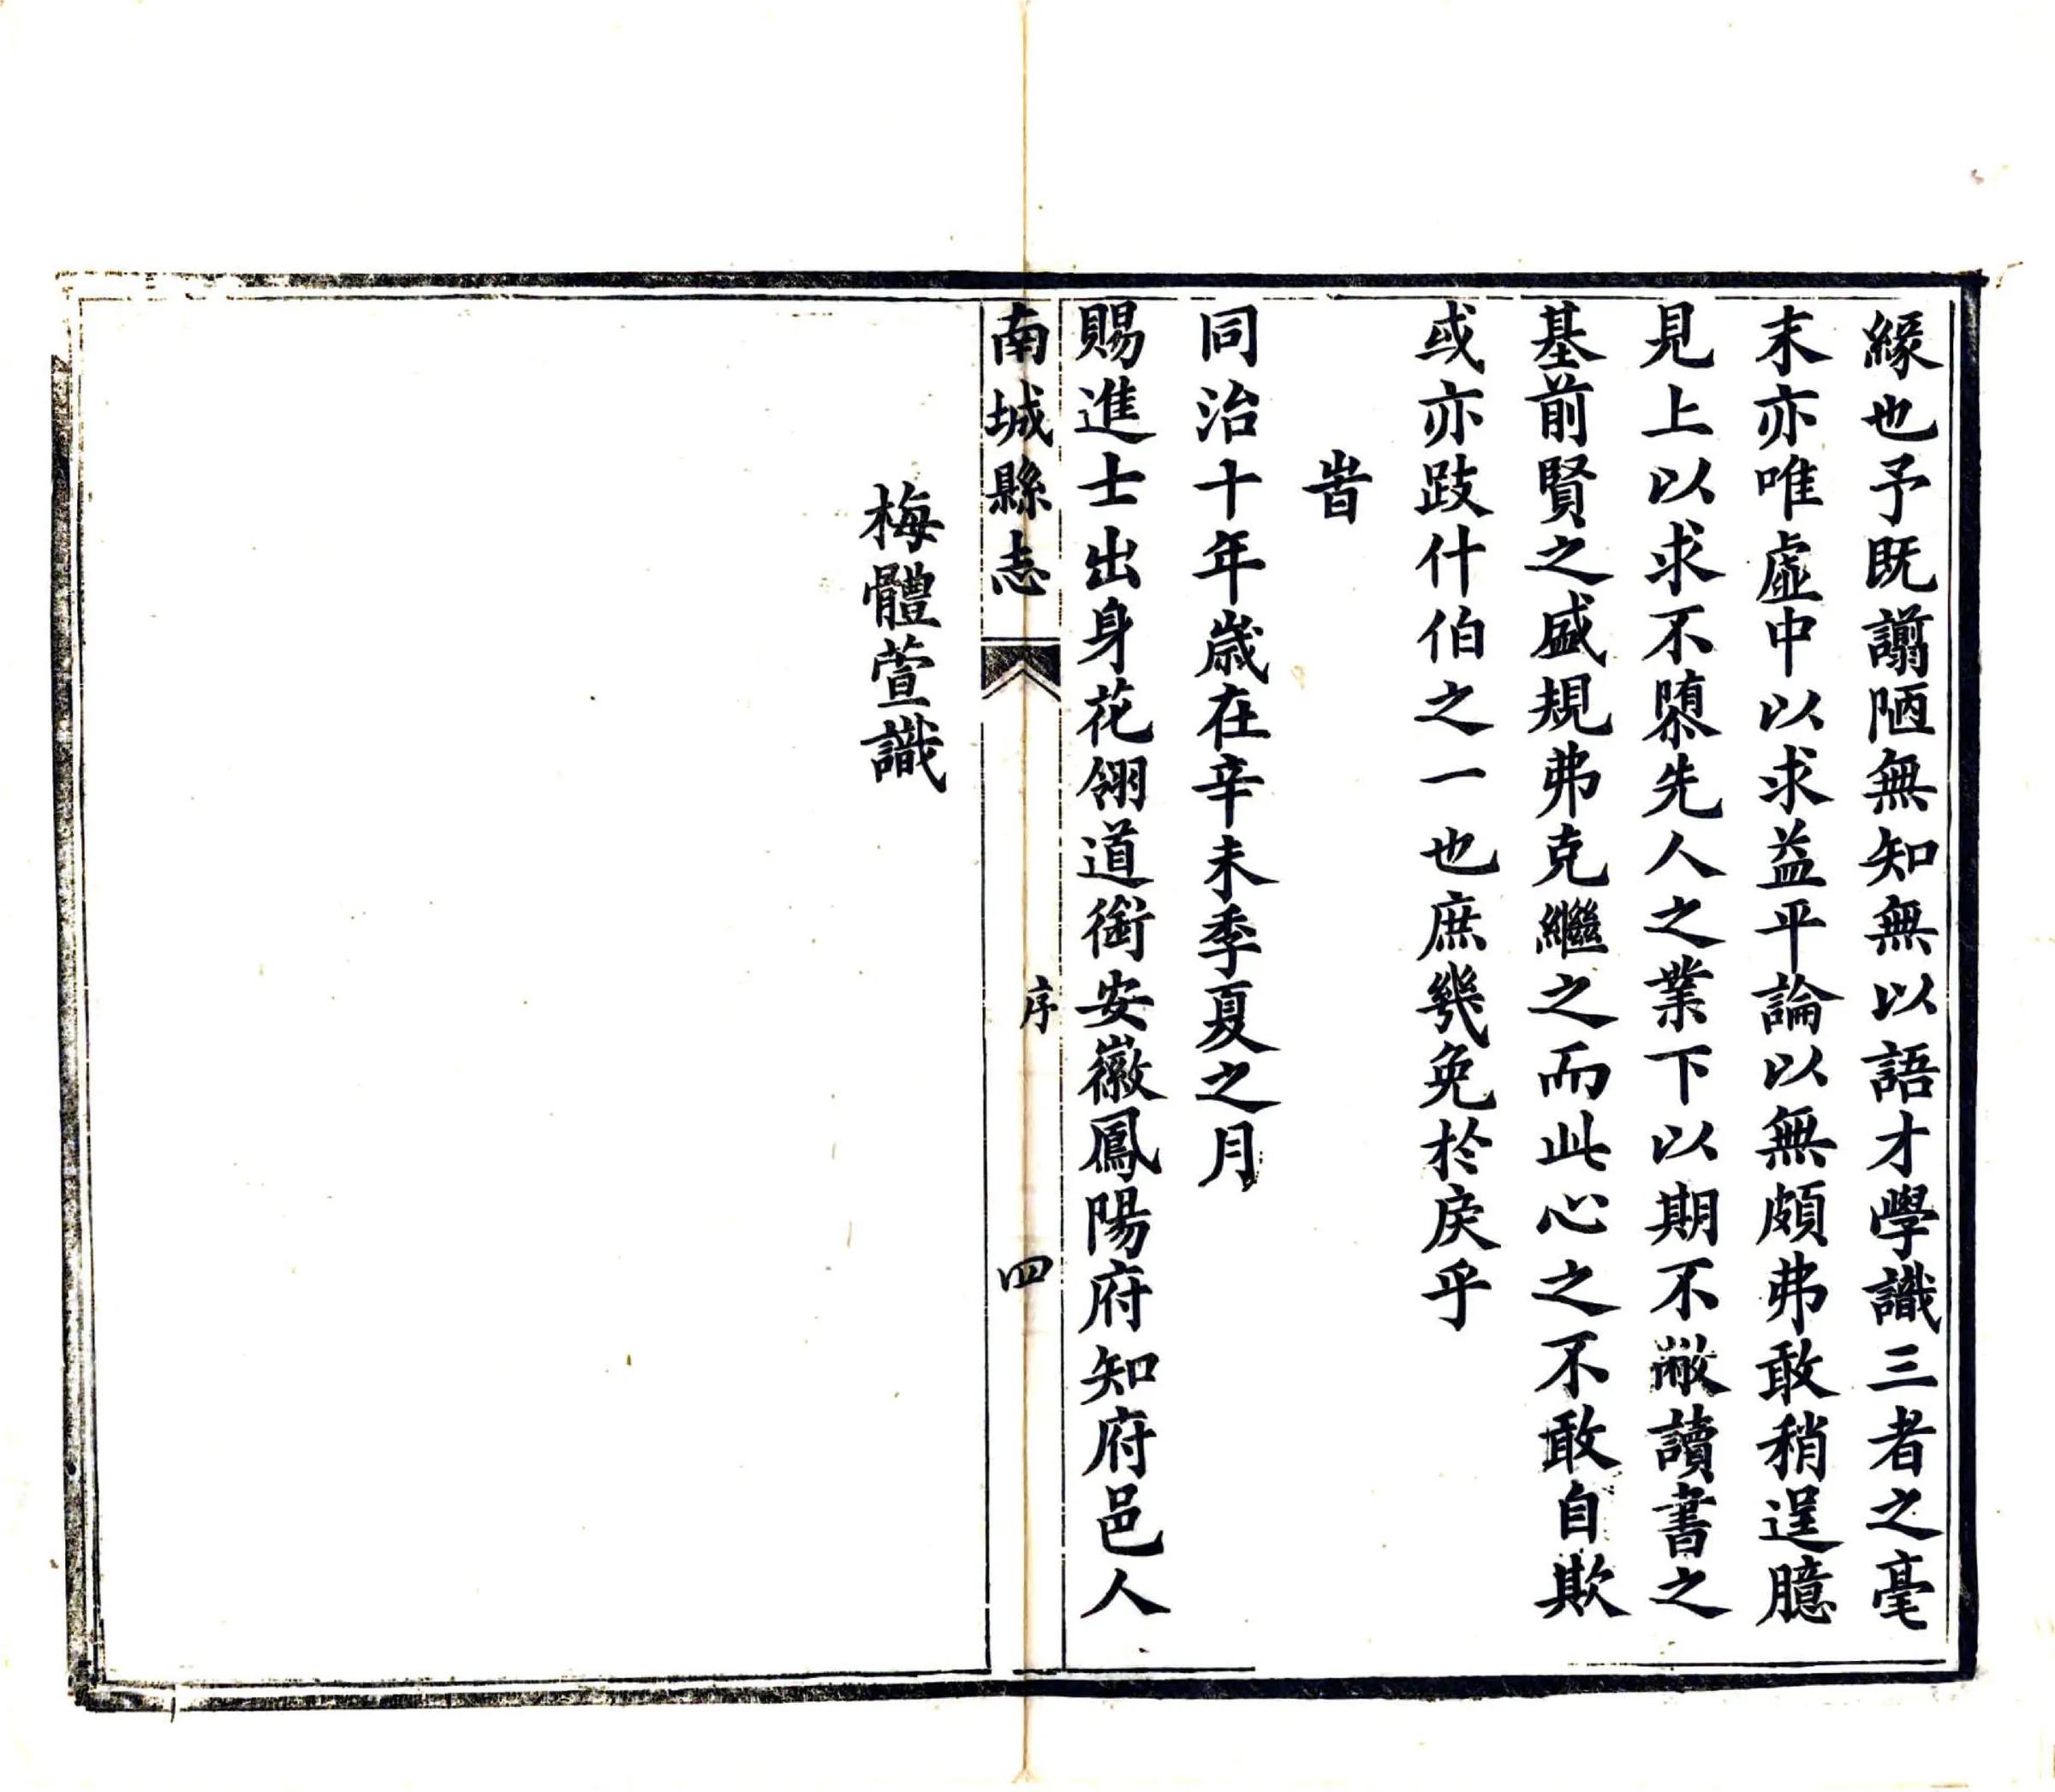 緣也予既謭陋無知無以語才學識三者之毫
末亦唯虛中以求益平論以無頗弗敢稍逞臆
見上以求不隳先人之業下以期不敝讀書之
基前賢之盛規弗克繼之而此心之不敢自欺
或亦跂什伯之一也庶幾免於戾乎
旹
同治十年歲在辛未季夏之月
賜進士出身花翎道銜安徽鳳陽府知府邑人
南城縣志
序
四
梅體萱識